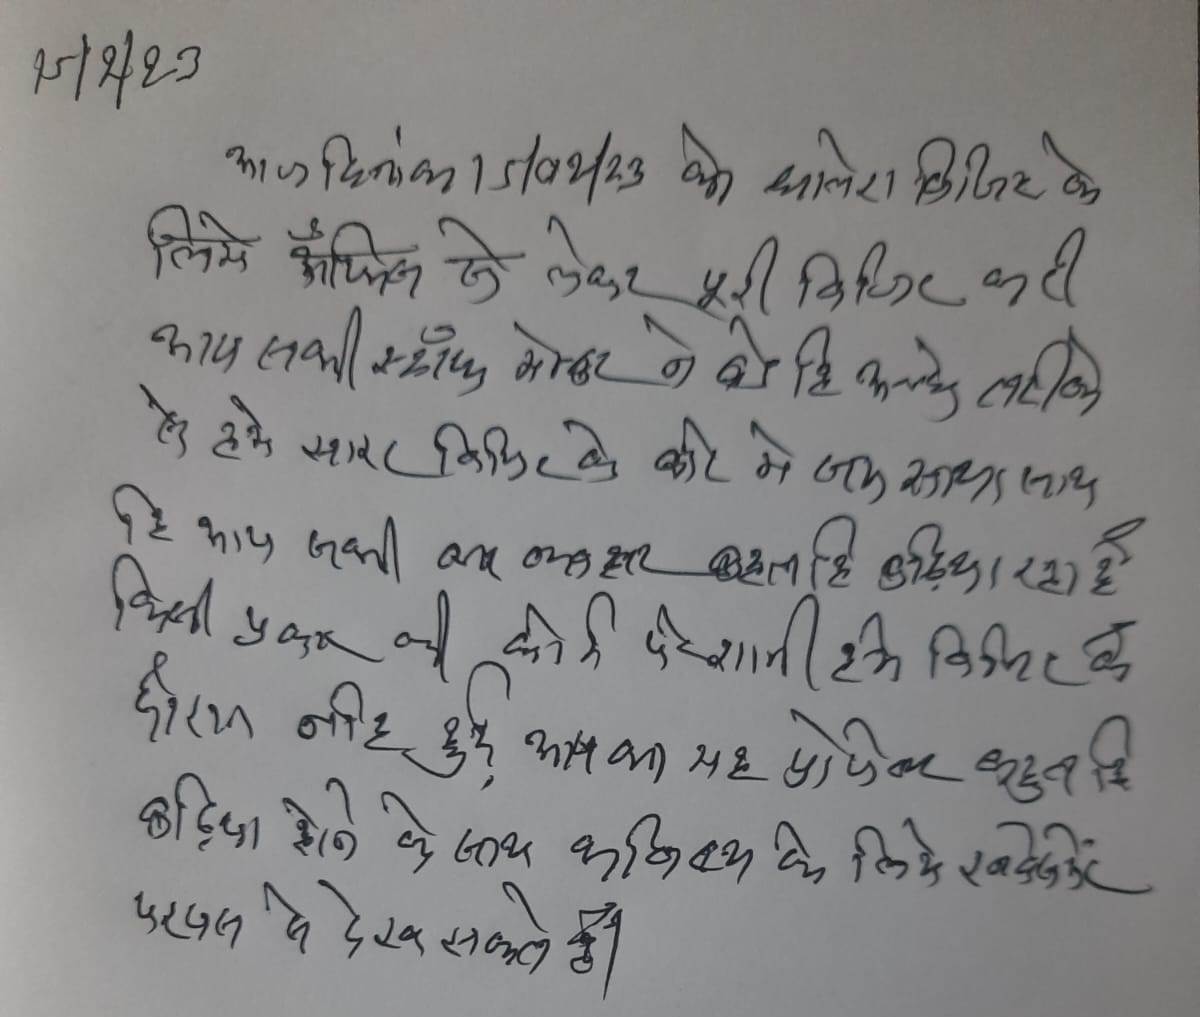 15/2/23
आज दिनांक 15/02/23 को धालेरा विजिट के
लिये ऑफिस से लेकर पूरी विजिट करी
आप सभी स्टॉफ मेम्बर ने बड़े हि अच्छे तरीके
से हमे सारट विजिट के बारे में समझाया साथ
हि आप सभी का व्यवहार बहुत हि बढ़िया रहा है
किसी प्रकार की कोई परेशानी हमे विजिट के
दौरान नहि हुई, आपका यह प्रोजेक्ट बहुत हि
बढ़िया होने के साथ भविष्य के लिये
से देख सकते हैं।